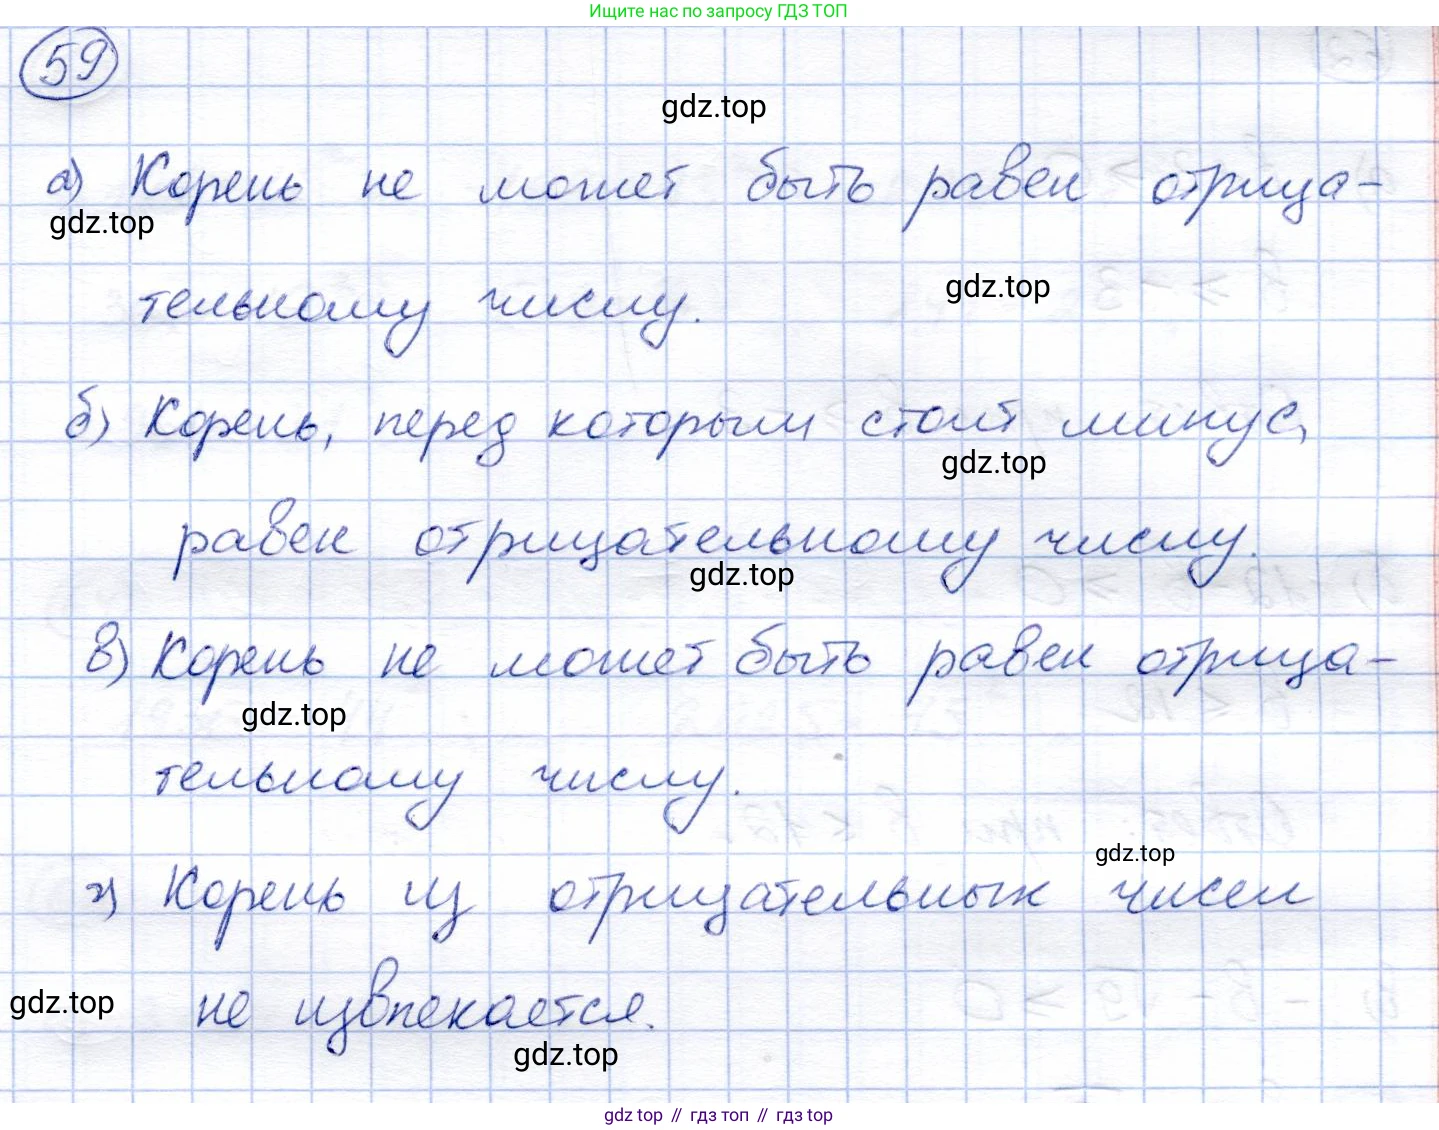 Ищите нас по запросу ГДЗ ТОП
59
gdz.top
а) Корень не может быть равен отрица-
gdz.top
тельному числу.
gdz.top
б) Корень, перед которым стоит минус,
gdz.top
равен отрицательному числу.
gdz.top
в) Корень не может быть равен отрица-
gdz.top
тельному числу.
gdz.top
г) Корень из отрицательных чисел
gdz.top
не извлекается.
gdz.top
gdz top // гдз топ // гдз top